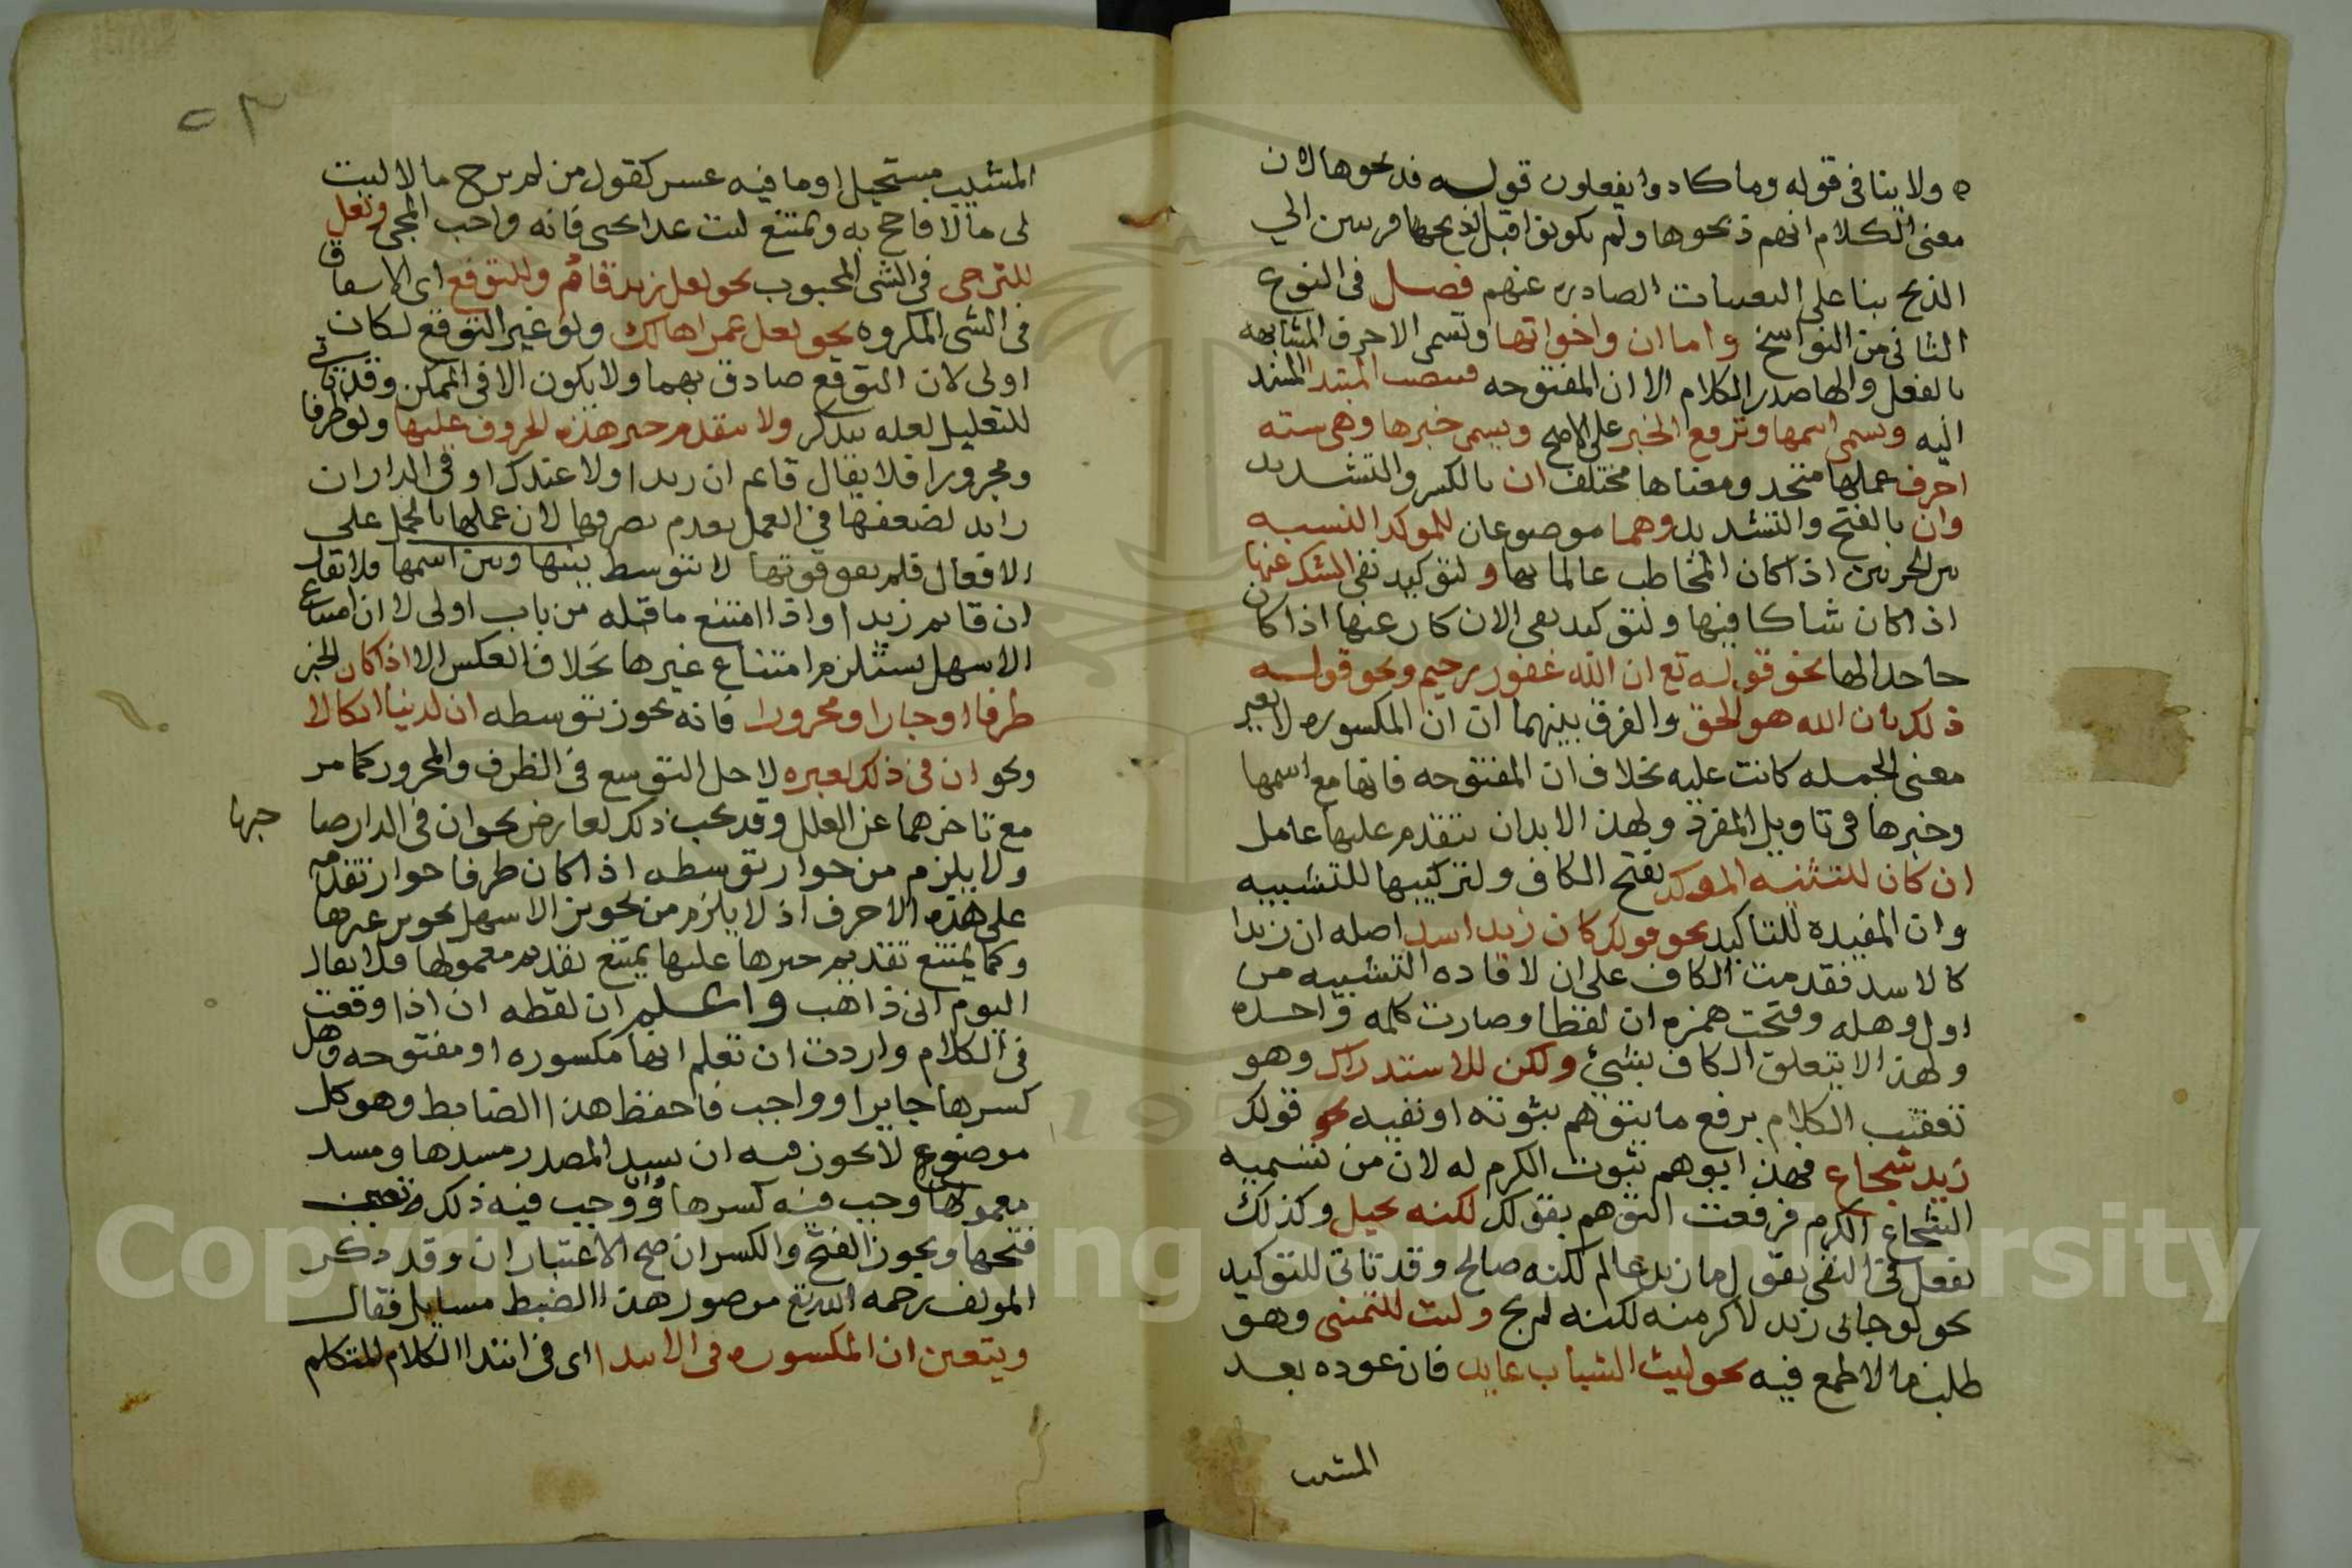 ولا ينافى قوله وما كادوا يفعلون قوله فذبحوها لان
معنى الكلام انهم ذبحوها ولم يكونوا قبل ذبحها قريبين الى
الذبح بنا على التعنتات الصادره عنهم فصل فى النوع
الثانى من النواسخ واما ان واخواتها وتسمى الاحرف المشابهه
بالفعل ولها صدر الكلام الا ان المفتوحه فينصب المبتدا المسند
اليه ويسمى اسمها وترفع الخبر على الاصح ويسمى خبرها وهى سته
احرف عملها متحد ومعناها مختلف ان بالكسر والتشديد
وان بالفتح والتشديد وهما موضوعان للموكد النسبه
بين الجزين اذا كان المخاطب عالما بها ولتوكيد نفى الشك عنها
اذا كان شاكا فيها ولتوكيد نفى الانكار عنها اذا كان
جاحدا لها نحو قوله تع ان الله غفور رحيم ونحو قوله
ذلك بان الله هو الحق والفرق بينهما ان ان المكسوره لا تغير
معنى الجمله كانت عليه بخلاف ان المفتوحه فانها مع اسمها
وخبرها فى تاويل المفرد ولهذا لابد ان يتقدم عليها عامل
ان كان للتشبيه الموكد بفتح الكاف ولتركيبها للتشبيه
وان المفيدة للتاكيد نحو قولك كان زيدا اسد اصله ان زيدا
كالاسد فقدمت الكاف على ان لافاده التشبيه من
اول وهله وفتحت همزه ان لفظا وصارت كلمه واحده
ولهذا لا يتعلق الكاف بشىء ولكن للاستدراك وهو
تعقيب الكلام برفع ما يتوهم ثبوته او نفيه نحو قولك
زيد شجاع فهذا يوهم ثبوت الكرم له لان من شيمه
الشجاع الكرم فرفعت التوهم بقولك لكنه بخيل وكذلك
تفعل فى النفى تقول ما زيد عالم لكنه صالح وقد تاتى للتوكيد
نحو لو جانى زيد لاكرمته لكنه لم يج وليت للتمنى وهو
طلب ما لا طمع فيه نحو ليت الشباب عايد فان عوده بعد
المشيب
المشيب مستحيل او ما فيه عسر كقول من لم يرج مالا ليت
لى مالا فاحج به ويمتنع ليت غدا يجى فانه واجب المجى ولعل
للترجى فى الشى المحبوب نحو لعل زيدا قائم وللتوقع اى الاشفاق
فى الشى المكروه نحو لعل عمرا هالك ولو عبر التوقع لكان
اولى لان التوقع صادق بهما ولا يكون الا فى الممكن وقد تاتى
للتعليل لعله يتذكر ولا يتقدم خبر هذه الحروف عليها ولو ظرفا
ومجرورا فلا يقال قايم ان زيدا ولا عندك او فى الدار ان
زايد لضعفها فى العمل بعدم تصرفها لان عملها بالحمل على
الافعال فلم يقو قوتها لا تتوسط بينها وبين اسمها فلا يقال
ان قايم زيدا واذا امتنع ما قبله من باب اولى لان امتناع
الاسهل يستلزم امتناع غيرها بخلاف العكس الا اذا كان الخبر
ظرفا او جارا ومجرورا فانه يجوز توسطه ان لدينا انكالا
ونحو ان فى ذلك لعبره لاجل التوسع فى الظرف والمجرور كما مر
مع تاخرهما عن العلل وقد يجب ذلك لعارض نحو ان فى الدار صا
حبها
ولا يلزم من جواز توسطه اذا كان ظرفا جواز تقدمه
على هذه الاحرف اذ لا يلزم من تجويز الاسهل تجويز غيرها
وكما يمتنع تقديم خبرها عليها يمتنع تقديم معمولها فلا يقال
اليوم انى ذاهب واعلم ان لفظه ان اذا وقعت
فى الكلام واردت ان تعلم انها مكسوره او مفتوحه وهل
كسرها جايز او واجب فاحفظ هذا الضابط وهو كل
موضع لا يجوز فيه ان يسد المصدر مسدها ومسد
معمولها وجب فيه كسرها وان وجب فيه ذلك وجب
فتحها ويجوز الفتح والكسر ان صح الاعتباران وقد ذكر
المولف رحمه الله تع من صور هذا الضبط مسايل فقال
ويتعين ان المكسوره فى الابتدا اى فى ابتدا الكلام المتكلم